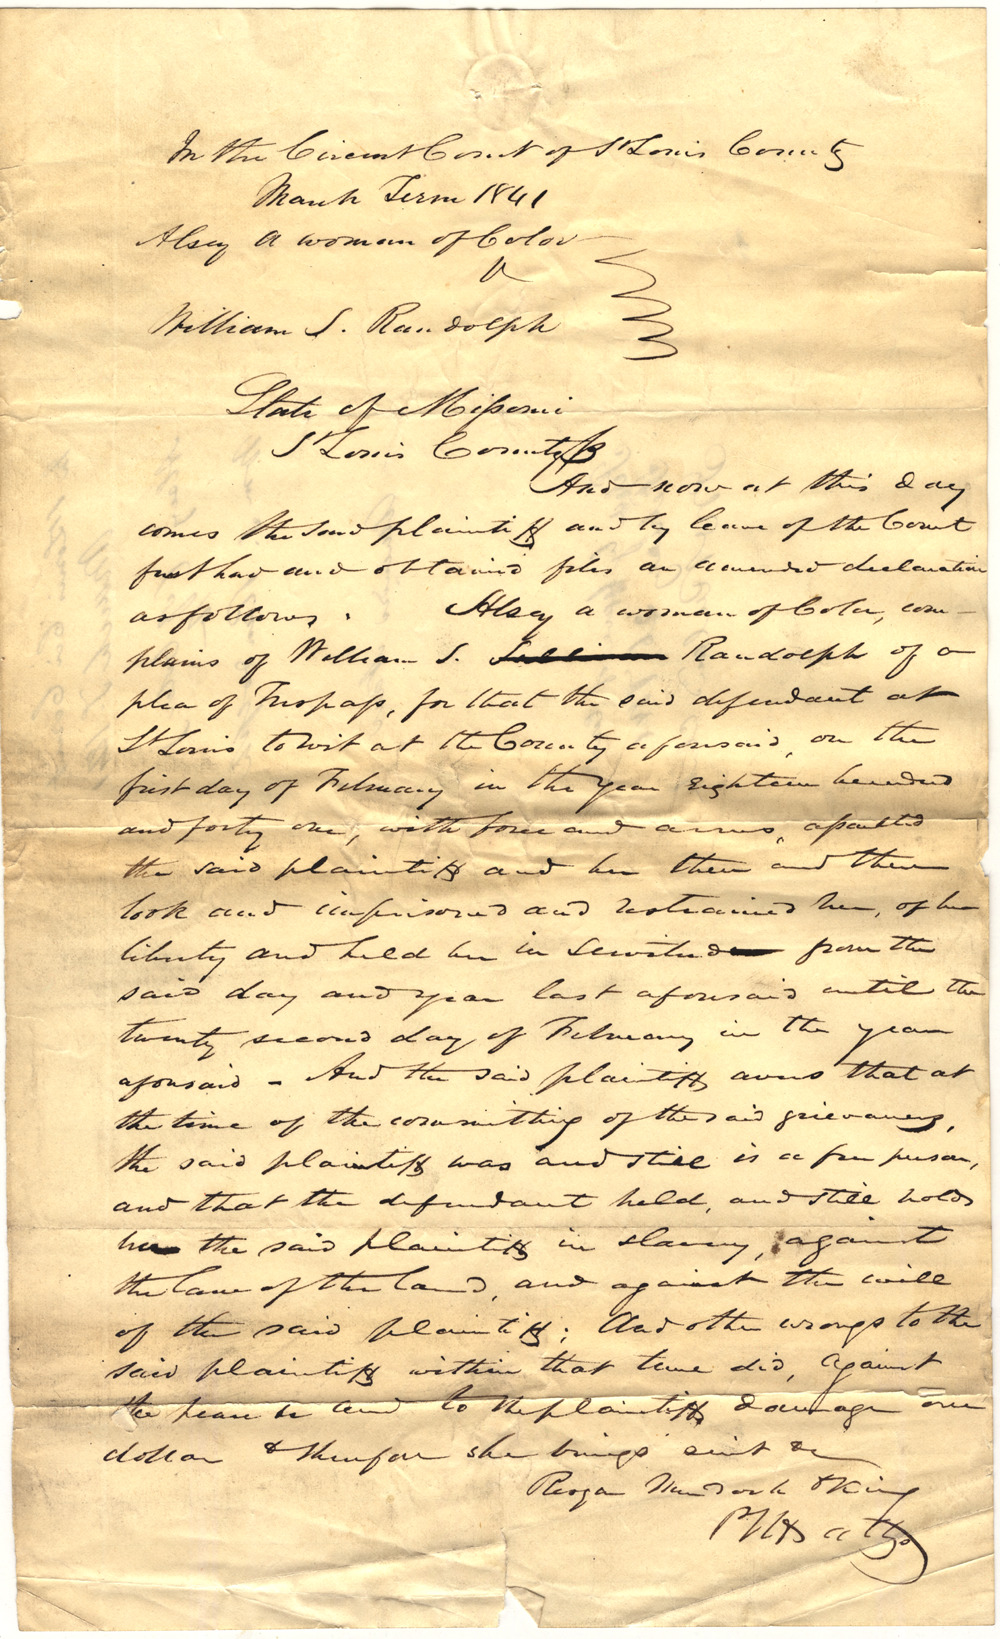 In the Circuit Court of St Louis County
March Term 1841
Alsey a woman of Color
v
William S. Randolph
State of Missouri
St Louis County Ss
And now at this day
comes the said plaintiff and by leave of the Court
first had and obtained files an amended declaration
as follows. Alsey a woman of Color, com-
plains of William S. Randolph of a
plea of Trespass, for that the said defendant at
St Louis to wit at the County aforesaid, on the
first day of February in the year eighteen hundred
and forty one, with force and arms, assaulted
the said plaintiff and her then and there
took and imprisoned and restrained her, of her
liberty and held her in servitude from the
said day and year last aforesaid until the
twenty second day of February in the year
aforesaid - And the said plaintiff avers that at
the time of the committing of the said grievances,
the said plaintiff was and still is a free person,
and that the defendant held, and still holds
her the said plaintiff in slavery, against
the law of the land, and against the will
of the said plaintiff; And other wrongs to the
said plaintiff within that time did, against
the peace &c and to the plaintiffs damage one
dollar & therefore she brings suit &c
Murdoch & King
atty